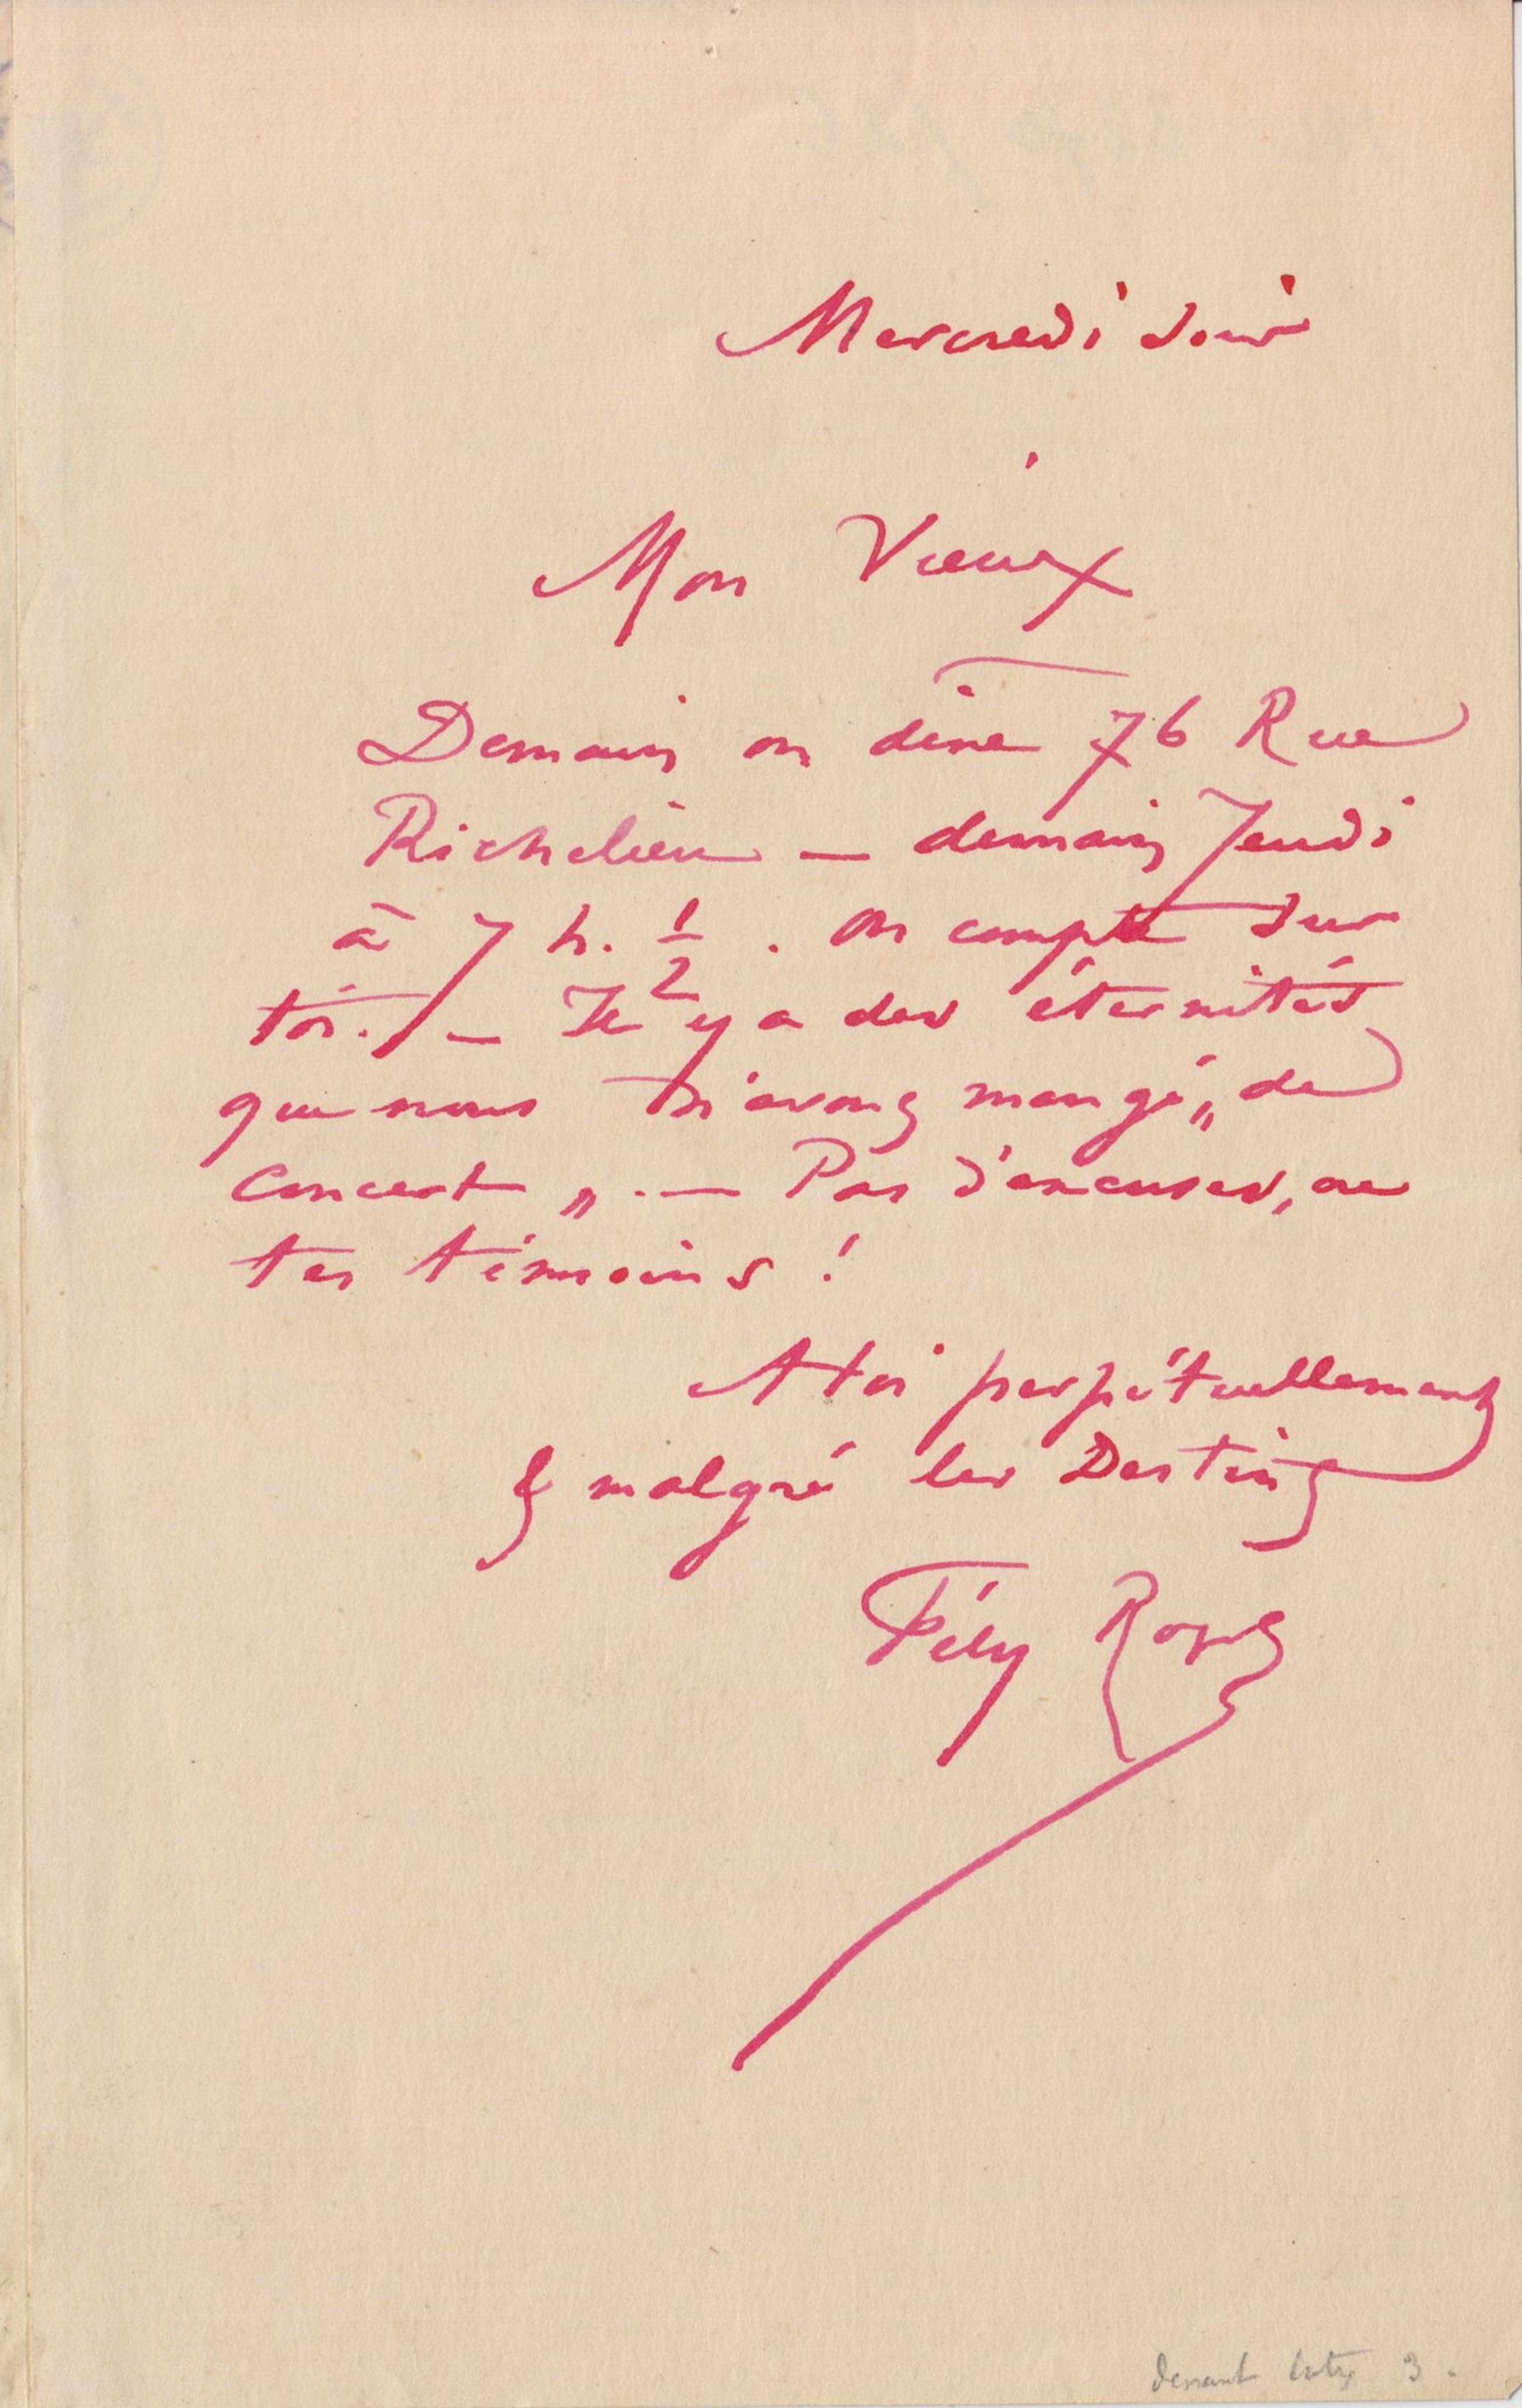 Mercredi soir
Mon Vieux
Demain on dine 76 Rue
Richelieu — demain Jeudi
à 7 h. 1/2 . On compte sur
toi. / — Il y a des éternités
que nous n'avons mangé „ de
concert „ . — Pas d'excuses, ou
tes témoins !
A toi perpétuellement
& malgré les Destins
Fély Rops
devant 3.